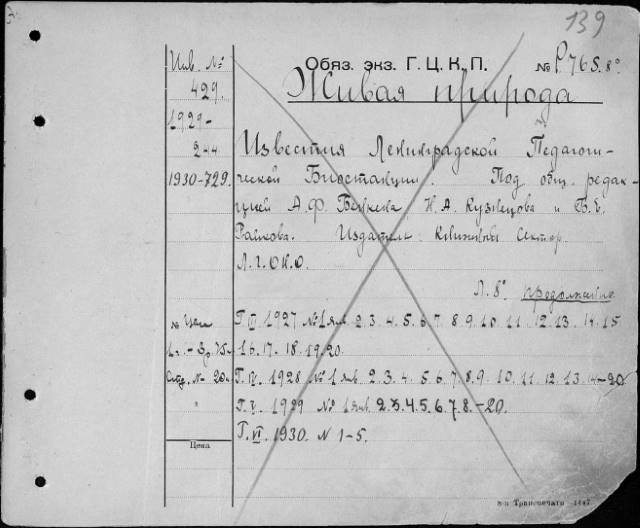 139
Инв. №
429.
1929-
244
1930-729.
Обяз. экз. Г. Ц. К. П.
№ Р 76 S. 8°
Живая природа
Известия Ленинградской Педагоги-
ческой Биостанции. Под общ. редак-
цией А. Ф. Бенкена, Н. А. Кузнецова и Б. Е.
Райкова. Издатель: Книжный Сектор
Л. Г. О. Н. О.
Л. 8° продолжение
Г. III 1927 № 1 янв. 2. 3. 4. 5. 6. 7. 8. 9. 10. 11. 12. 13. 14. 15.
16. 17. 18. 19. 20.
Г. IV. 1928 № 1 янв. 2. 3. 4. 5. 6. 7. 8. 9. 10. 11. 12. 13. 14-20.
Г. V. 1929 № 1 янв. 2. 3. 4. 5. 6. 7. 8. - 20.
Г. VI. 1930. N 1-5.
Цена
8-я Транспечать 1447